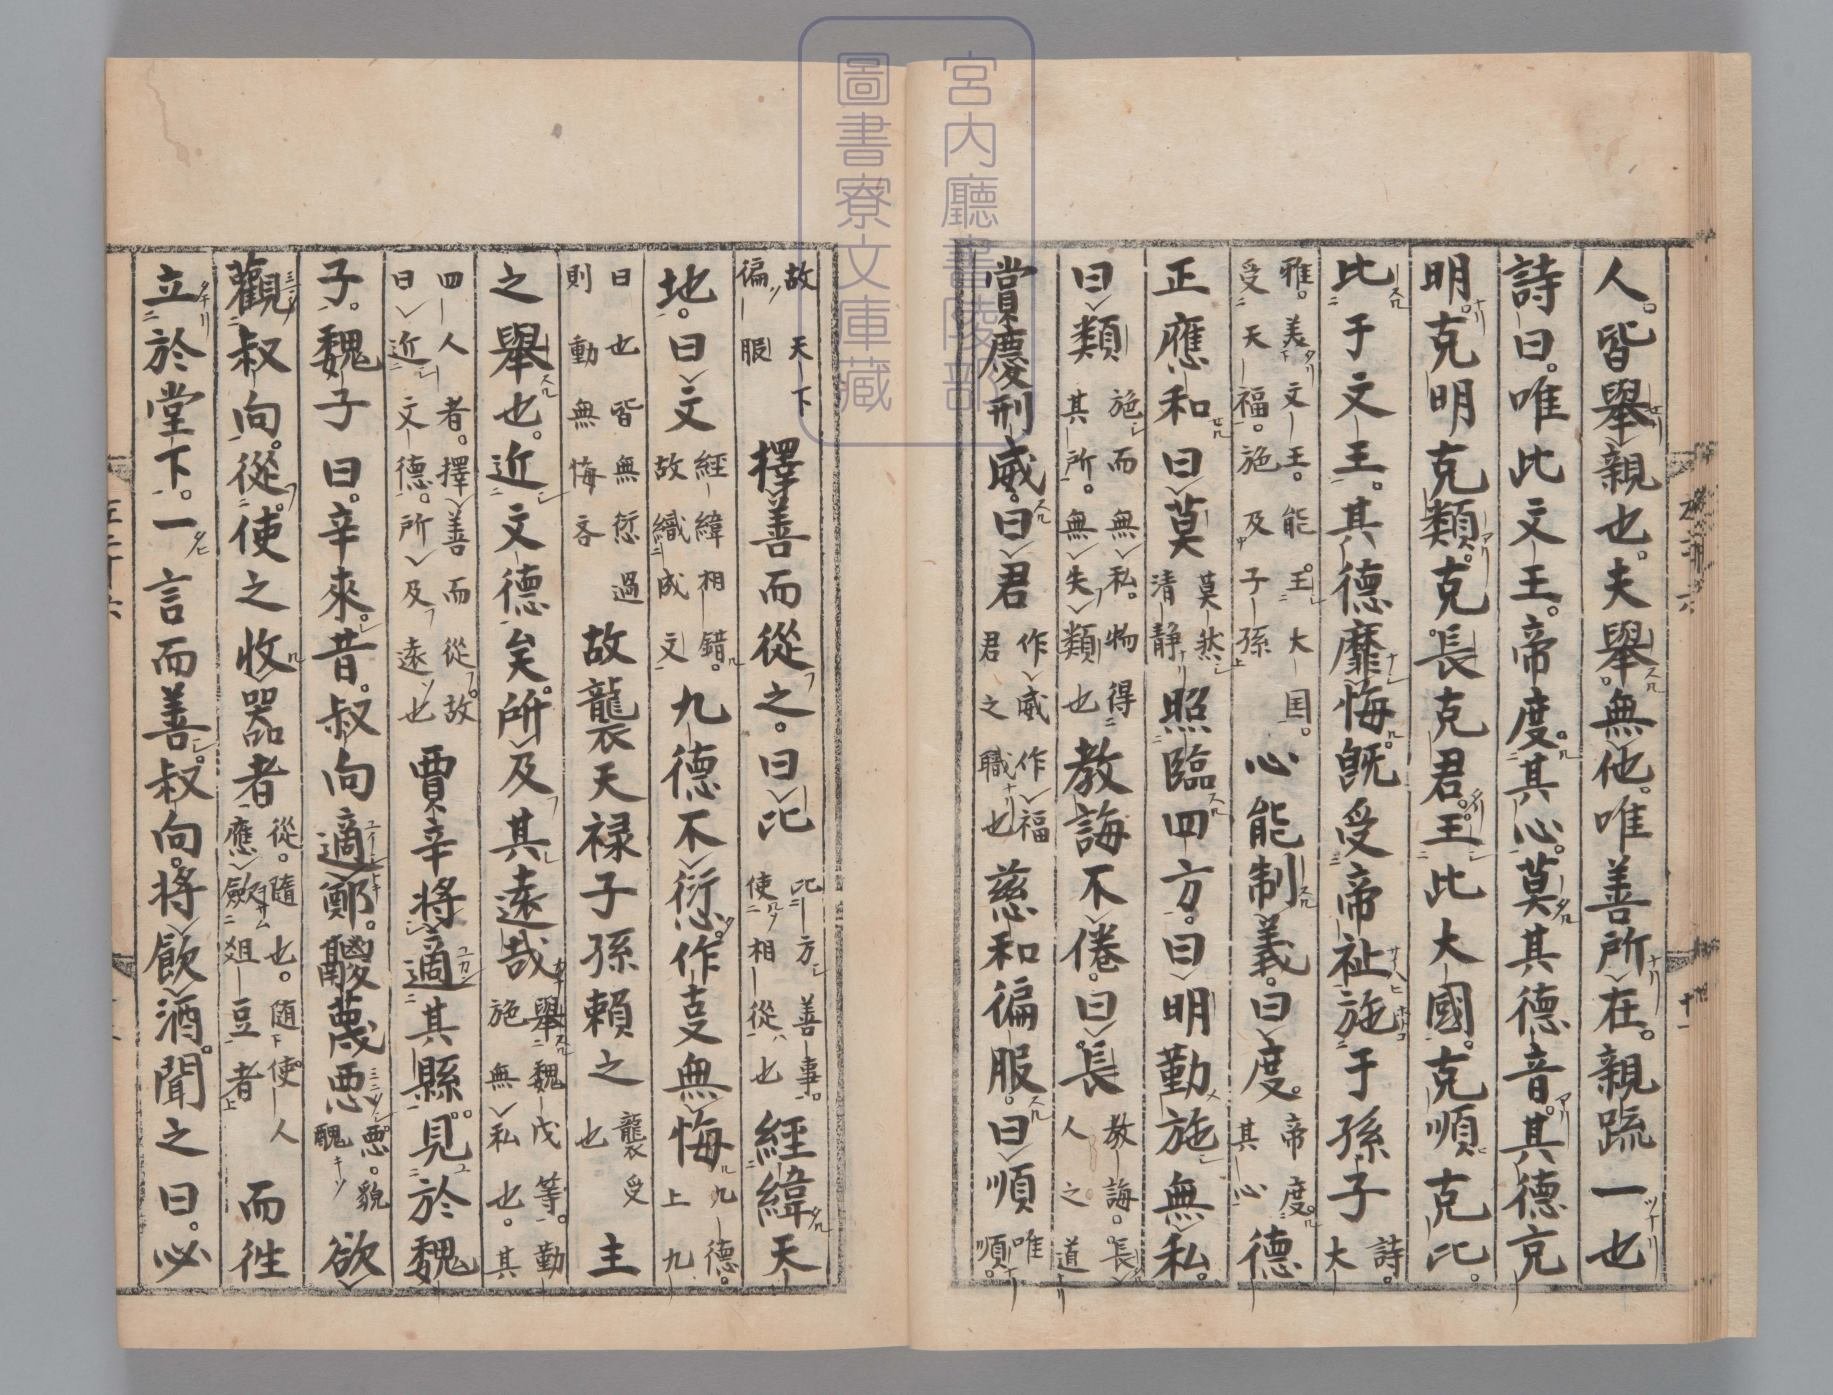 人。皆舉親也。夫舉無他。唯善所在。親疏一也
詩曰。唯此文王。帝度其心。莫其德音。其德克
明。克明克類。克長克君。王此大國。克順克比。
比于文王。其德靡悔。既受帝祉。施于孫子 詩。大
雅。美文王。能王大国。受天福。施及子孫 心能制義。曰度。帝度。其心 德
正應和曰莫 莫然清静 照臨四方。曰明勤施無私。
曰類 施而無私。物得其所。無失類也 教誨不倦。曰長 教誨。長人之道
賞慶刑威。曰君 作威作福君之職也 慈和徧服。曰順 唯順。
故天下徧服 擇善而從之。曰比 比方善事。使相從也 經緯天
地。曰文 經緯相錯。故織成文 九德不愆。作事無悔 九德。上九
曰也皆無愆過則動無悔吝 故襲天禄子孫賴之 襲受也 主
之舉也。近文德矣。所及其遠哉 舉魏戊等。勤施無私也。其
四人者。擇善而從。故曰近文德。所及遠也 賈辛將適其縣。見於魏
子。魏子曰。辛來。昔。叔向適鄭。鬷蔑惡 惡。貌醜 欲
觀叔向。從使之收器者 從。隨也。随使人應斂俎豆者 而往
立於堂下。一言而善。叔向。將飲酒。聞之曰。必
宮内廳書陵部
圖書寮文庫藏